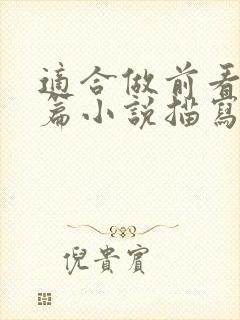 適合做前看
篇小說描寫
倪貴賓